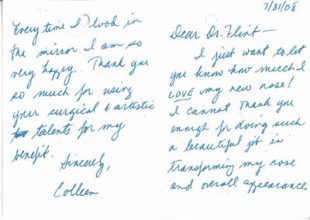 7/31/08
Dear Dr. Flint-
I just want to let
you know how much I
LOVE my new nose!
I cannot thank you
enough for doing such
a beautiful job in
transforming my nose
and overall appearance
Every time I look in
the mirror I am so
very happy. Thank you
so much for using
your surgical & artistic
talents for my
benefit.
Sincerely,
Colleen